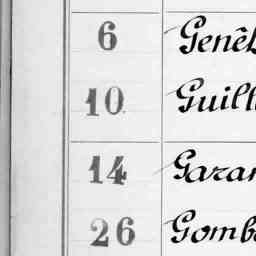 6 Genêt
10 Guill
14 Garan
26 Gomb